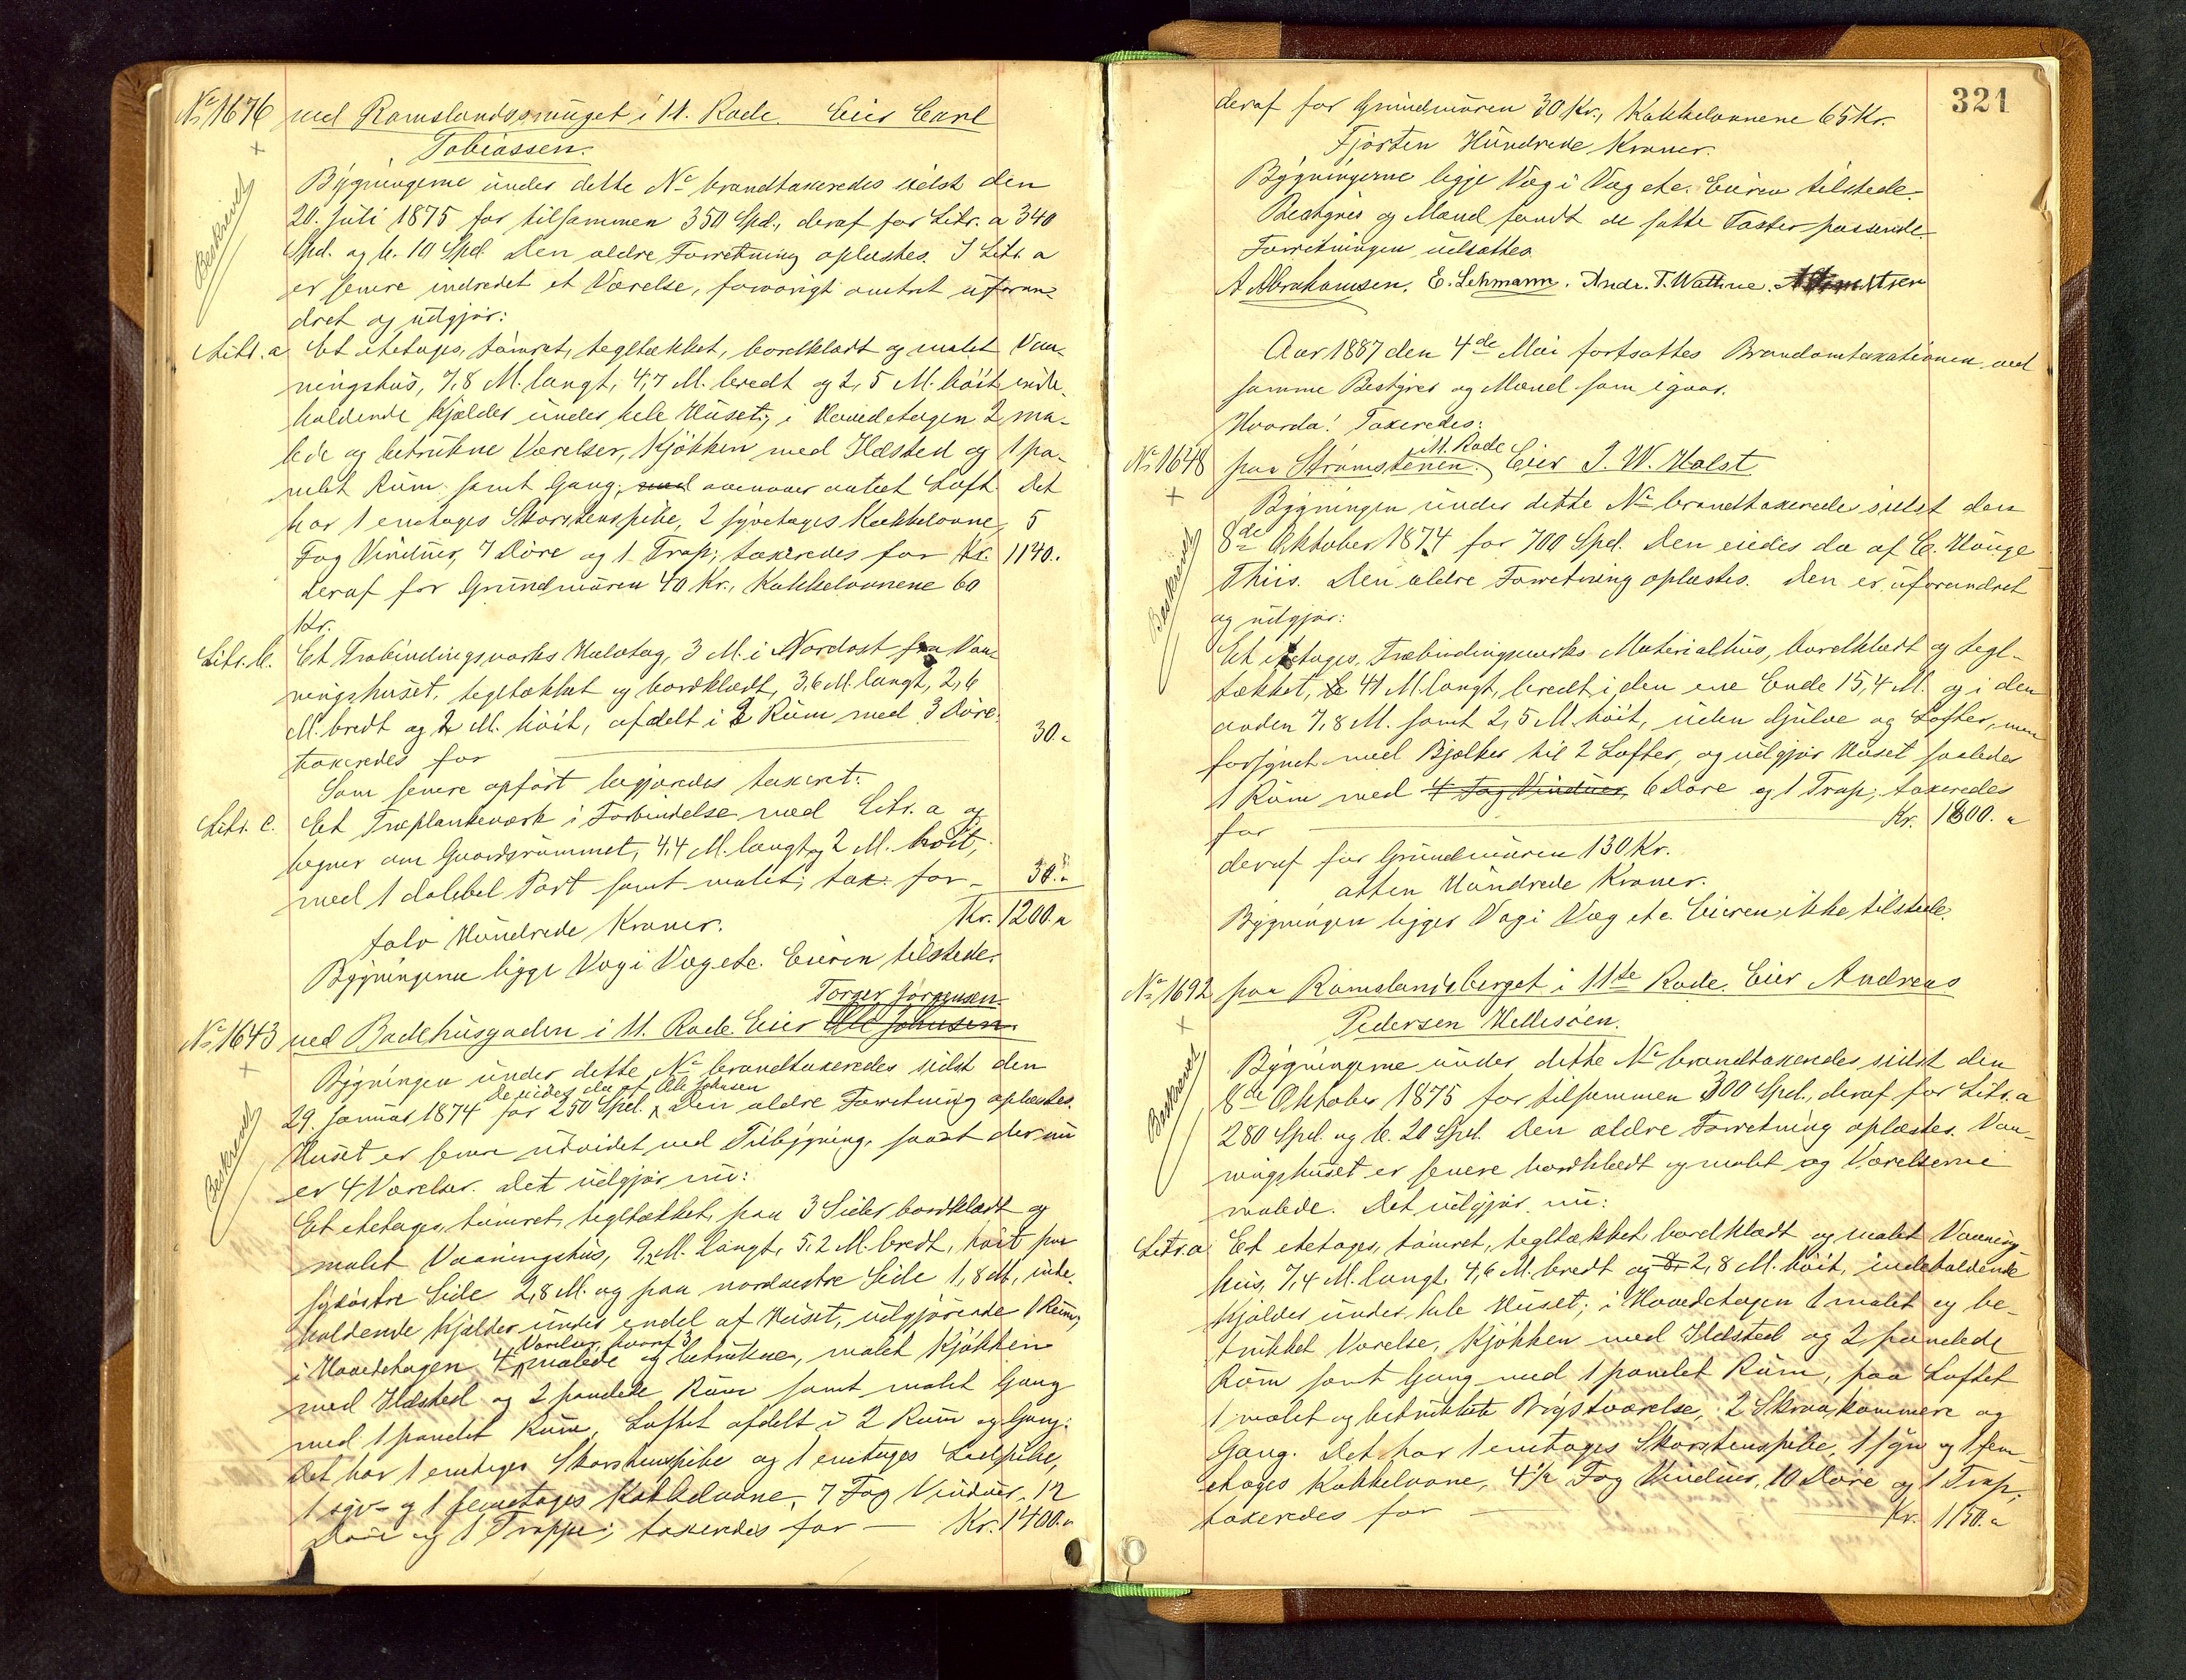 No 1676 ved Ramslandssmuget i 11. Rode. Eier Carl
Tobiassen.
Beskrevet
Bygningerne under dette No brandtaxeredes sidst den
20. Juli 1875 for tilsammen 350 Spd., deraf for Litr. a 340
Spd. og b. 10 Spd. Den ældre Forretning oplæstes. I Litr. a
er senere indredet et Værelse, forøvrigt omtrent uforan-
dret og udgjør:
Litr. a Et etetages, tømret, tegltækket, bordklædt og malet Vaa-
ningshus, 7,8 M. langt, 4,7 M. bredt og 2,5 M. høit inde-
holdende Kjælder under hele Huset; i Hovedetagen 2 ma-
lede og betrukne Værelser, Kjøkken med Ildsted og 1 pa-
nelet Rum samt Gang; med ovenover Loft. Det
har 1 enetages Skorstenspibe, 2 tyvetages Kakkelovne, 5
Fag Vinduer, 7 Døre og 1 Trap; taxeredes for Kr. 1140.
deraf for Grundmuren 40 Kr., Kakkelovnene 60
Kr.
Litr. b. Et Træbindingsværks Halvtag, 3 M. i Nordost fra Vaa-
ningshuset, tegltækket og bordklædt, 3,6 M. langt, 2,6
M. bredt og 2 M. høit, afdelt i 2 Rum med 3 Døre
taxeredes for 30.
Som senere opført begjæredes taxeret:
Litr. c. Et Træplankeværk i Forbindelse med Litr. a og
hegner om Gaardsrummet, 4,4 M. langt og 2 M. høit,
med 1 dobbel Port samt malet; tax. for 30.
Kr. 1200.
tolv Hundrede Kroner.
Bygningerne ligge Væg i Væg etc. Eieren tilstede.
Torger Jørgensen
No 1643 ved Badehusgaden i 11. Rode. Eier Ole Johnsen.
Beskrevet
Bygningen under dette No brandtaxeredes sidst den
De eiedes da af Ole Johnsen
29. Januar 1874 for 250 Spd. Den ældre Forretning oplæstes.
Huset er senere udvidet ved Tilbygning, saa at der nu
er 4 Værelser. Det udgjør nu:
Et etetages, tømret, tegltækket, paa 3 Sider bordklædt og
malet Vaaningshus, 9,2 M. langt, 5,2 M. bredt, høit paa
sydøstre Side 2,8 M. og paa nordvestre Side 1,8 M., inde-
holdende Kjælder under endel af Huset, udgjørende 1 Rum,
Værelser, hvoraf 3
i Hovedetagen 4 malede og betrukne, malet Kjøkken
med Ildsted og 2 panelede Rum samt malet Gang
med 1 panelet Rum, Loftet afdelt i 2 Rum og Gang.
Det har 1 enetages Skorstenspibe og 1 enetages Ledpibe,
1 syv- og 1 femetages Kakkelovne, 7 Fag Vinduer, 12
Døre og 1 Trappe; taxeredes for — Kr. 1400.
321
deraf for Grundmuren 30 Kr., Kakkelovnene 65 Kr.
Fjorten Hundrede Kroner.
Bygningerne ligge Væg i Væg etc. Eieren tilstede.
Bestyrer og Mænd fandt de satte Taxter passende.
Forretningen udsattes.
A Abrahamsen. E. Lehmann. Andr. T. Wathne.
Aar 1887 den 4de Mai fortsattes Brandomtaxationen ved
samme Bestyrer og Mænd som igaar.
Hvorda! Taxeredes:
i 11. Rode
No 1648 paa Strømstenen. Eier I. W. Holst
Beskrevet
Bygningen under dette No brandtaxeredes sidst den
8de Oktober 1874 for 700 Spd. Den eiedes da af C. Hauge
Thiis. Den ældre Forretning oplæstes. Den er uforandret
og udgjør:
Et etetages, Træbindingsværks Materialhus, bordklædt og tegl-
tækket, 41 M. langt, bredt i den ene Ende 15,4 M. og i den
anden 7,8 M. samt 2,5 M. høit, uden Gulve og Lofter, men
forsynet med Bjælker til 2 Lofter, og udgjør Huset saaledes
1 Rum med 4 Fag Vinduer, 6 Døre og 1 Trap; taxeredes
for Kr. 1800.
deraf for Grundmuren 130 Kr.
atten Hundrede Kroner.
Bygningen ligger Væg i Væg etc. Eieren ikke tilstede.
No 1692 paa Ramslandsberget i 11te Rode. Eier Andreas
Pedersen Hellisøen.
Beskrevet
Bygningerne under dette No brandtaxeredes sidst den
8de Oktober 1875 for tilsammen 300 Spd., deraf for Litr. a
280 Spd. og b. 20 Spd. Den ældre Forretning oplæstes. Vaa-
ningshuset er senere bordklædt og malet og Værelserne
malede. Det udgjør nu:
Litr. a Et etetages, tømret, tegltækket bordklædt og malet Vaaning-
hus, 7,4 M. langt, 4,6 M. bredt og 2,8 M. høit, indeholdende
Kjælder under hele Huset; i Hovedetagen 1 malet og be-
trukket Værelse, Kjøkken med Ildsted og 2 panelede
Rum samt Gang med 1 panelet Rum, paa Loftet
1 malet og betrukket Kvistværelse, 2 Skraakammere og
Gang. Det har 1 enetages Skorstenspibe, 1 syv og 1 fem-
etages Kakkelovne, 4½ Fag Vinduer, 10 Døre og 1 Trap;
taxeredes for Kr. 1150.